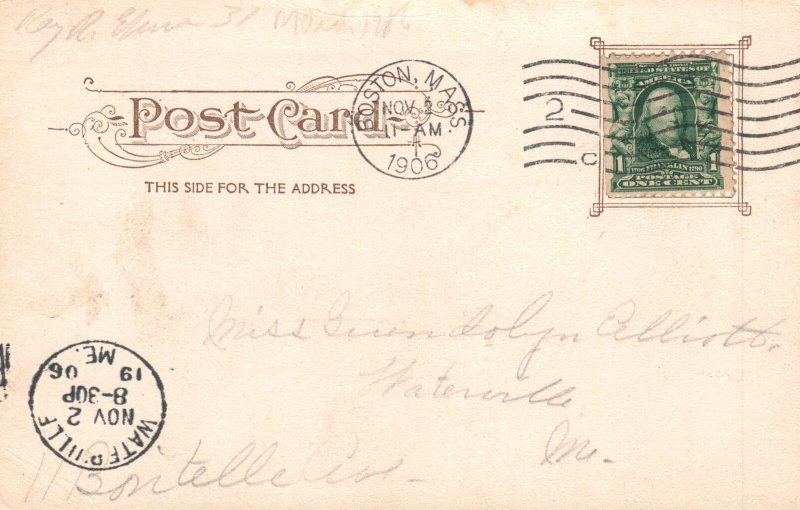 March 1906
Post Card
THIS SIDE FOR THE ADDRESS
BOSTON, MASS.
NOV 2
11-AM
1906
2
C
UNITED STATES OF
AMERICA
1706 FRANKLIN 1790
1 POSTAGE 1
ONE CENT
Miss Guendolyn Elliott.
Waterville
Me.
11 Boutelle Ave-
WATERVILLE
NOV 2
8-30P
19 06
ME.